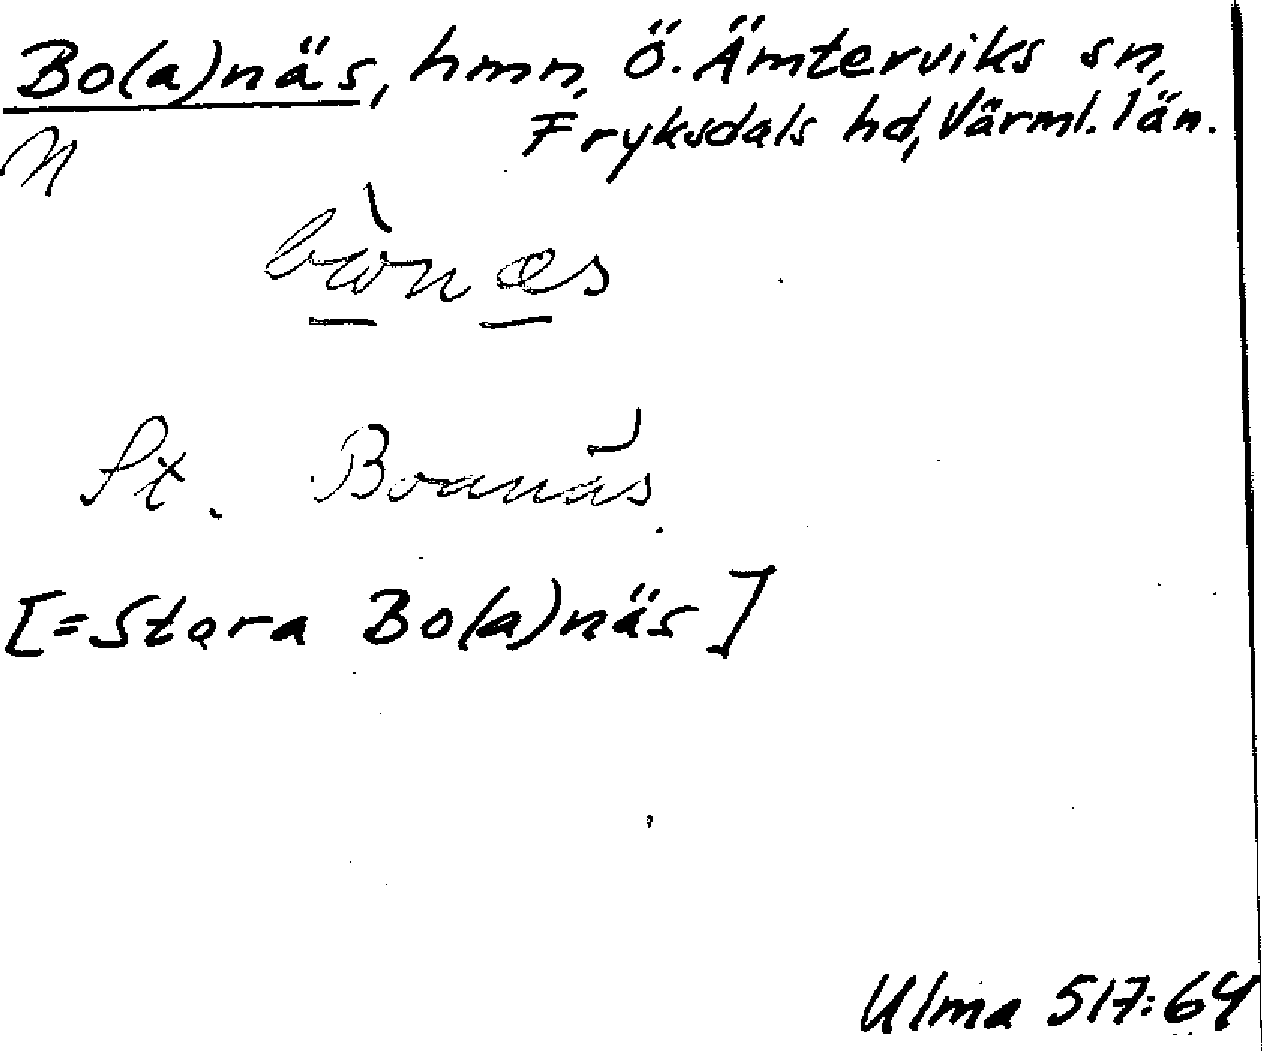 Bo(a)näs, hmn, Ö. Ämterviks sn,
Fryksdals hd, Värml. län.
St. Boanäs.
[=Stora Bo(a)näs]
Ulma 517:64